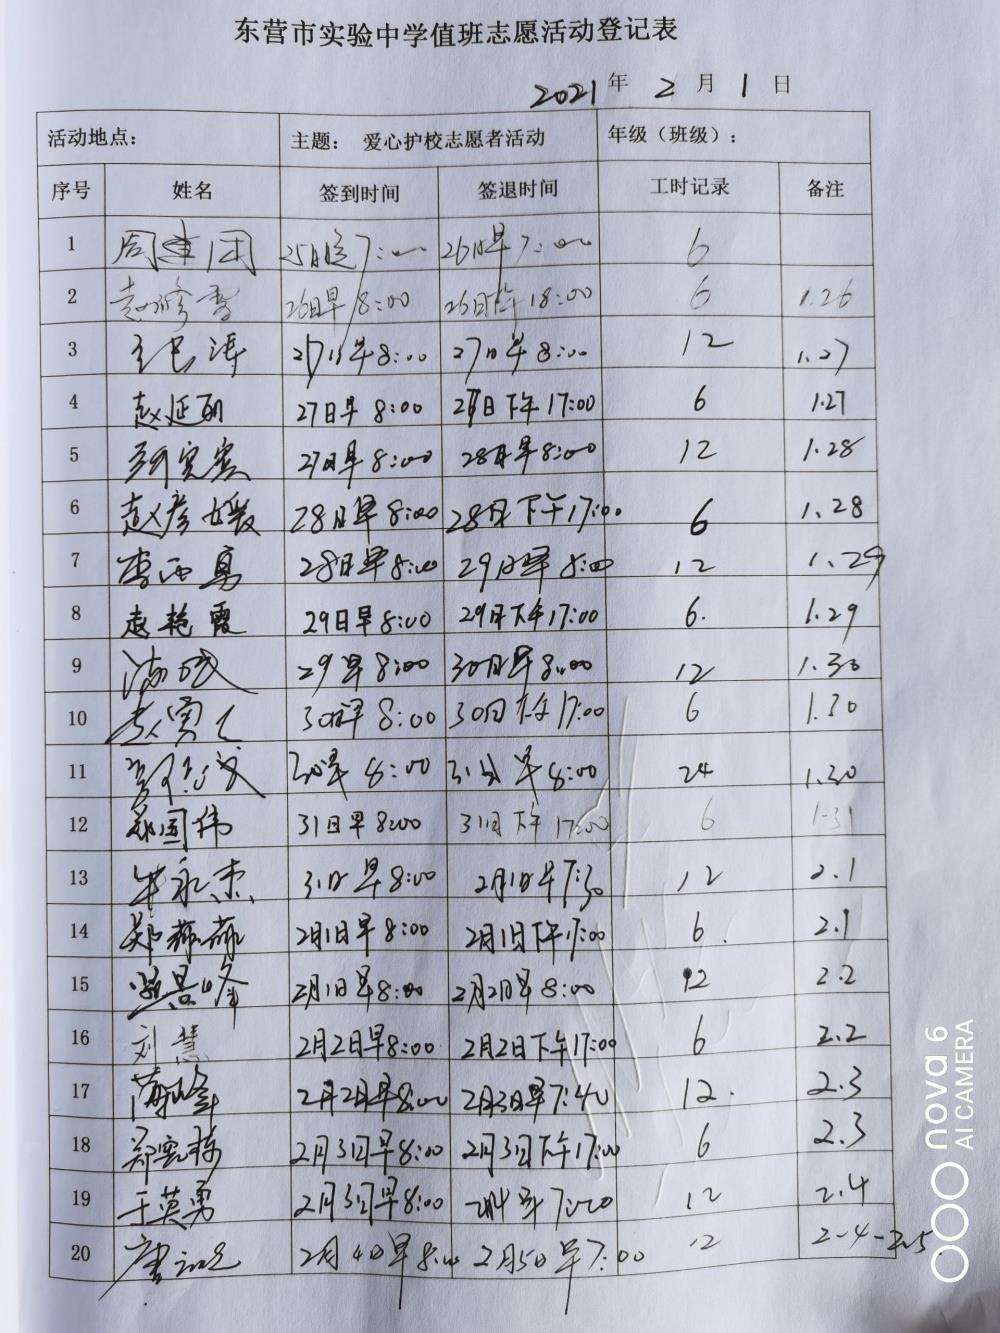 东营市实验中学值班志愿活动登记表
2021年 2月 1日
活动地点: 主题: 爱心护校志愿者活动 年级（班级）:
序号 姓名 签到时间 签退时间 工时记录 备注
1 周建国 25日晚7:00 26日早7:00 6
2 赵修雪 26日早8:00 26日下午18:00 6 1.26
3 27日早8:00 27日早8:00 12 1.27
4 赵延丽 27日早8:00 27日下午17:00 6 1.27
5 27日早8:00 28日早8:00 12 1.28
6 赵彦媛 28日早8:00 28日下午17:00 6 1.28
7 李西勇 28日早8:00 29日早8:00 12 1.29
8 赵艳霞 29日早8:00 29日下午17:00 6. 1.29
9 29早8:00 30日早8:00 12 1.30
10 30日早8:00 30日下午17:00 6 1.30
11 30早8:00 31日早8:00 24 1.30
12 郑国伟 31日早8:00 31日下午17:00 6 1.31
13 牟永杰 31日早8:00 2月1日早7:30 12 2.1
14 郑赫赫 2月1日早8:00 2月1日下午17:00 6. 2.1
15 2月1日早8:00 2月2日早8:00 12 2.2
16 刘慧 2月2日早8:00 2月2日下午17:00 6 2.2
17 2月2日早8:00 2月3日早7:40 12. 2.3
18 2月3日早8:00 2月3日下午17:00 6 2.3
19 于英勇 2月3日早8:00 12 2.4
20 2月4日早8:00 2月5日早7:00 12 2-4-2.5
nova 6
AI CAMERA